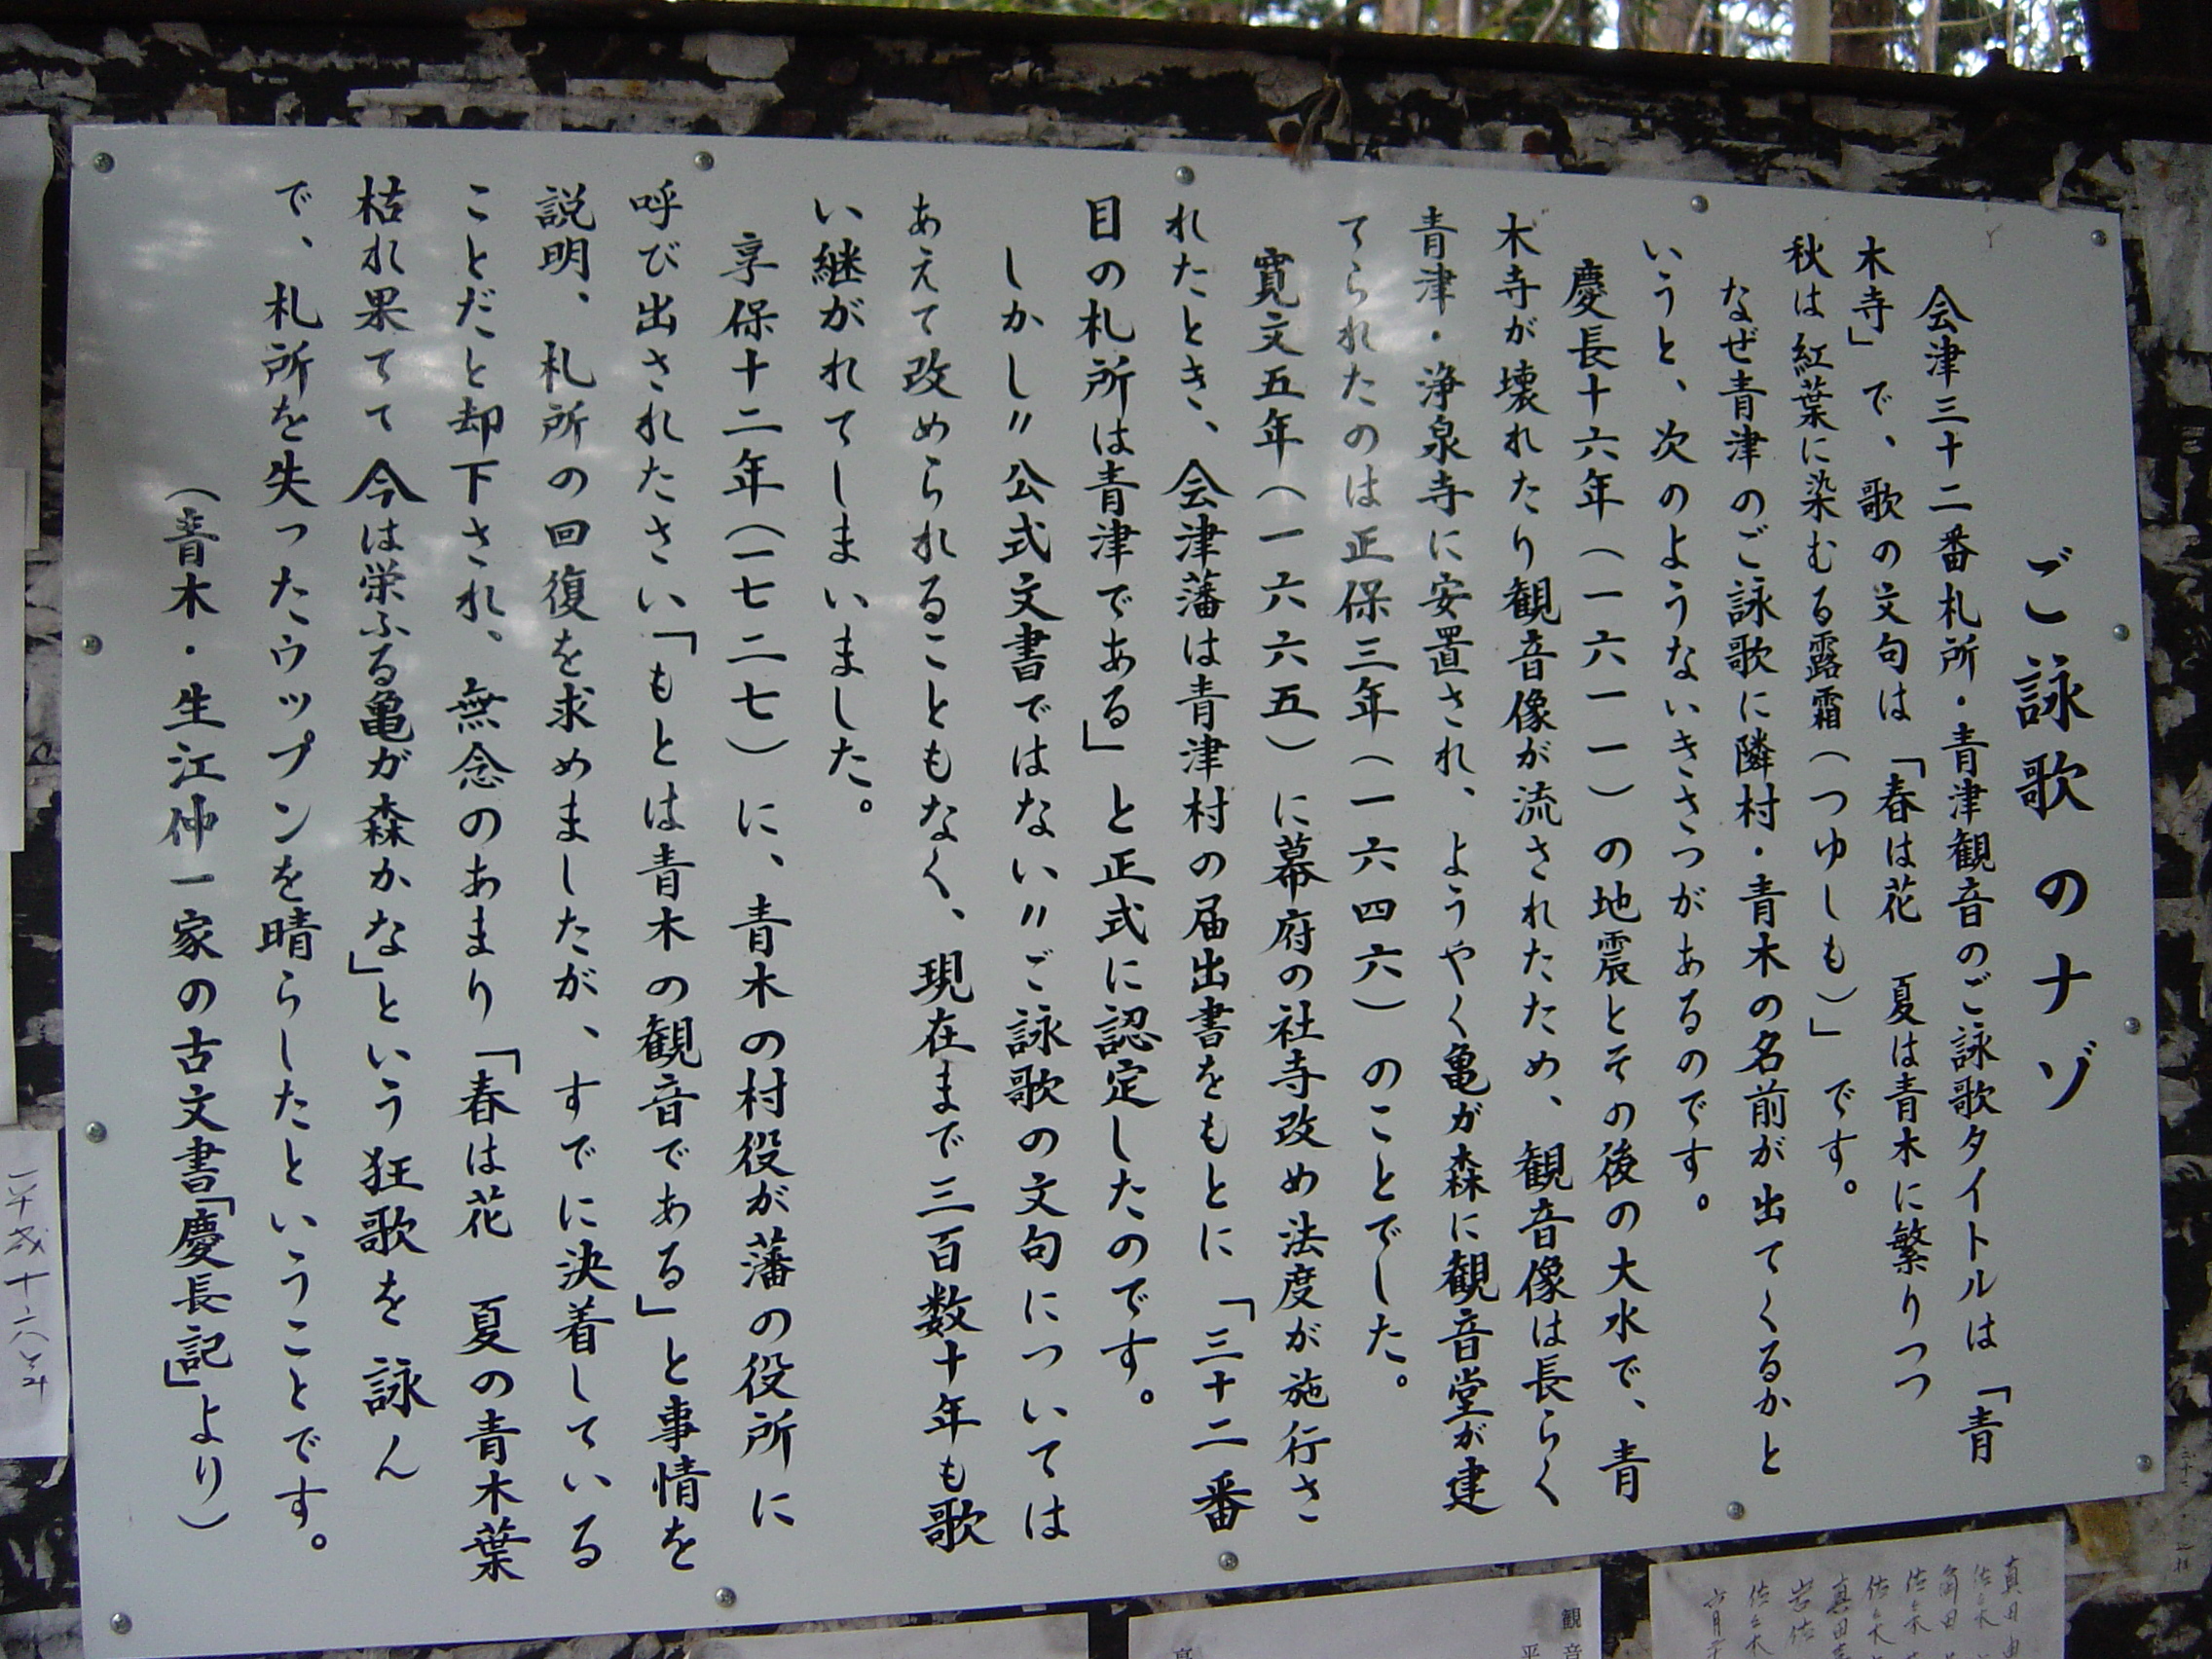 ご詠歌のナゾ
会津三十二番札所・青津観音のご詠歌タイトルは「青
木寺」で、歌の文句は「春は花　夏は青木に繁りつつ
秋は紅葉に染むる露霜（つゆしも）」です。
なぜ青津のご詠歌に隣村・青木の名前が出てくるかと
いうと、次のようないきさつがあるのです。
慶長十六年（一六一一）の地震とその後の大水で、青
木寺が壊れたり観音像が流されたため、観音像は長らく
青津・浄泉寺に安置され、ようやく亀が森に観音堂が建
てられたのは正保三年（一六四六）のことでした。
寛文五年（一六六五）に幕府の社寺改め法度が施行さ
れたとき、会津藩は青津村の届出書をもとに「三十二番
目の札所は青津である」と正式に認定したのです。
しかし〃公式文書ではない〃ご詠歌の文句については
あえて改められることもなく、現在まで三百数十年も歌
い継がれてしまいました。
享保十二年（一七二七）に、青木の村役が藩の役所に
呼び出されたさい「もとは青木の観音である」と事情を
説明、札所の回復を求めましたが、すでに決着している
ことだと却下され、無念のあまり「春は花　夏の青木葉
枯れ果てて今は栄ふる亀が森かな」という狂歌を詠ん
で、札所を失ったウップンを晴らしたということです。
（青木・生江仲一家の古文書「慶長記」より）
平成十六年
観音
平
真田由
佐々木
角田
佐々木
佐々木
真田
岩佐
佐々木